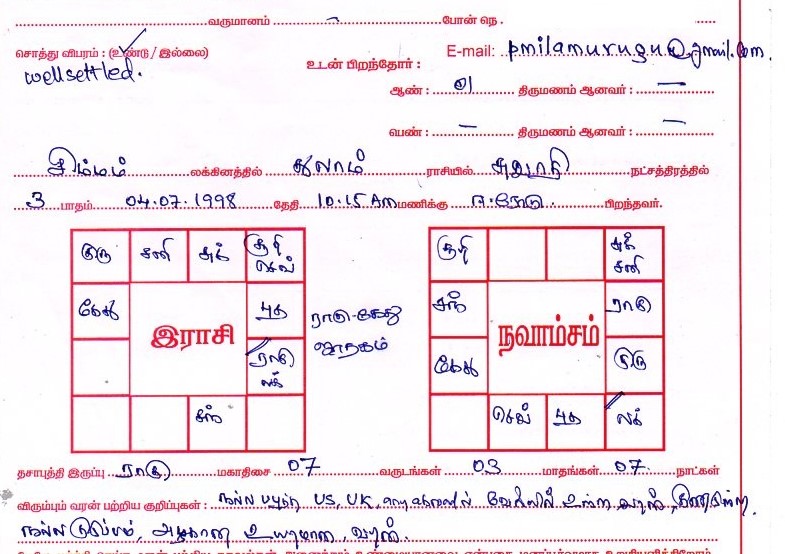 வருமானம் – போன் நெ.
சொத்து விபரம் : (உண்டு / இல்லை) E-mail: pmilamurugu@gmail.com.
wellsettled. உடன் பிறந்தோர் :
ஆண் : திருமணம் ஆனவர் : –
பெண் : – திருமணம் ஆனவர் : –
சிம்மம் லக்கினத்தில் துலாம் ராசியில் சுவாதி நட்சத்திரத்தில்
3 பாதம் 04.07.1998 தேதி 10.15 Am மணிக்கு ஈரோடு. பிறந்தவர்.
குரு சனி சுக் சூரி செவ்
கேது புத
இராசி
ராகு லக்
சந்
ராகு-கேது
ஜாதகம்
சூரி சுக் சனி
சந் ராகு
நவாம்சம்
கேது குரு
செவ் புத லக்
தசாபுத்தி இருப்பு ராகு மகாதிசை 07 வருடங்கள் 03 மாதங்கள் 07. நாட்கள்
விரும்பும் வரன் பற்றிய குறிப்புகள் : நல்ல US, UK, உள்ள வரன்,
நல்ல குடும்பம், அழகான உயரமான, வரன்.